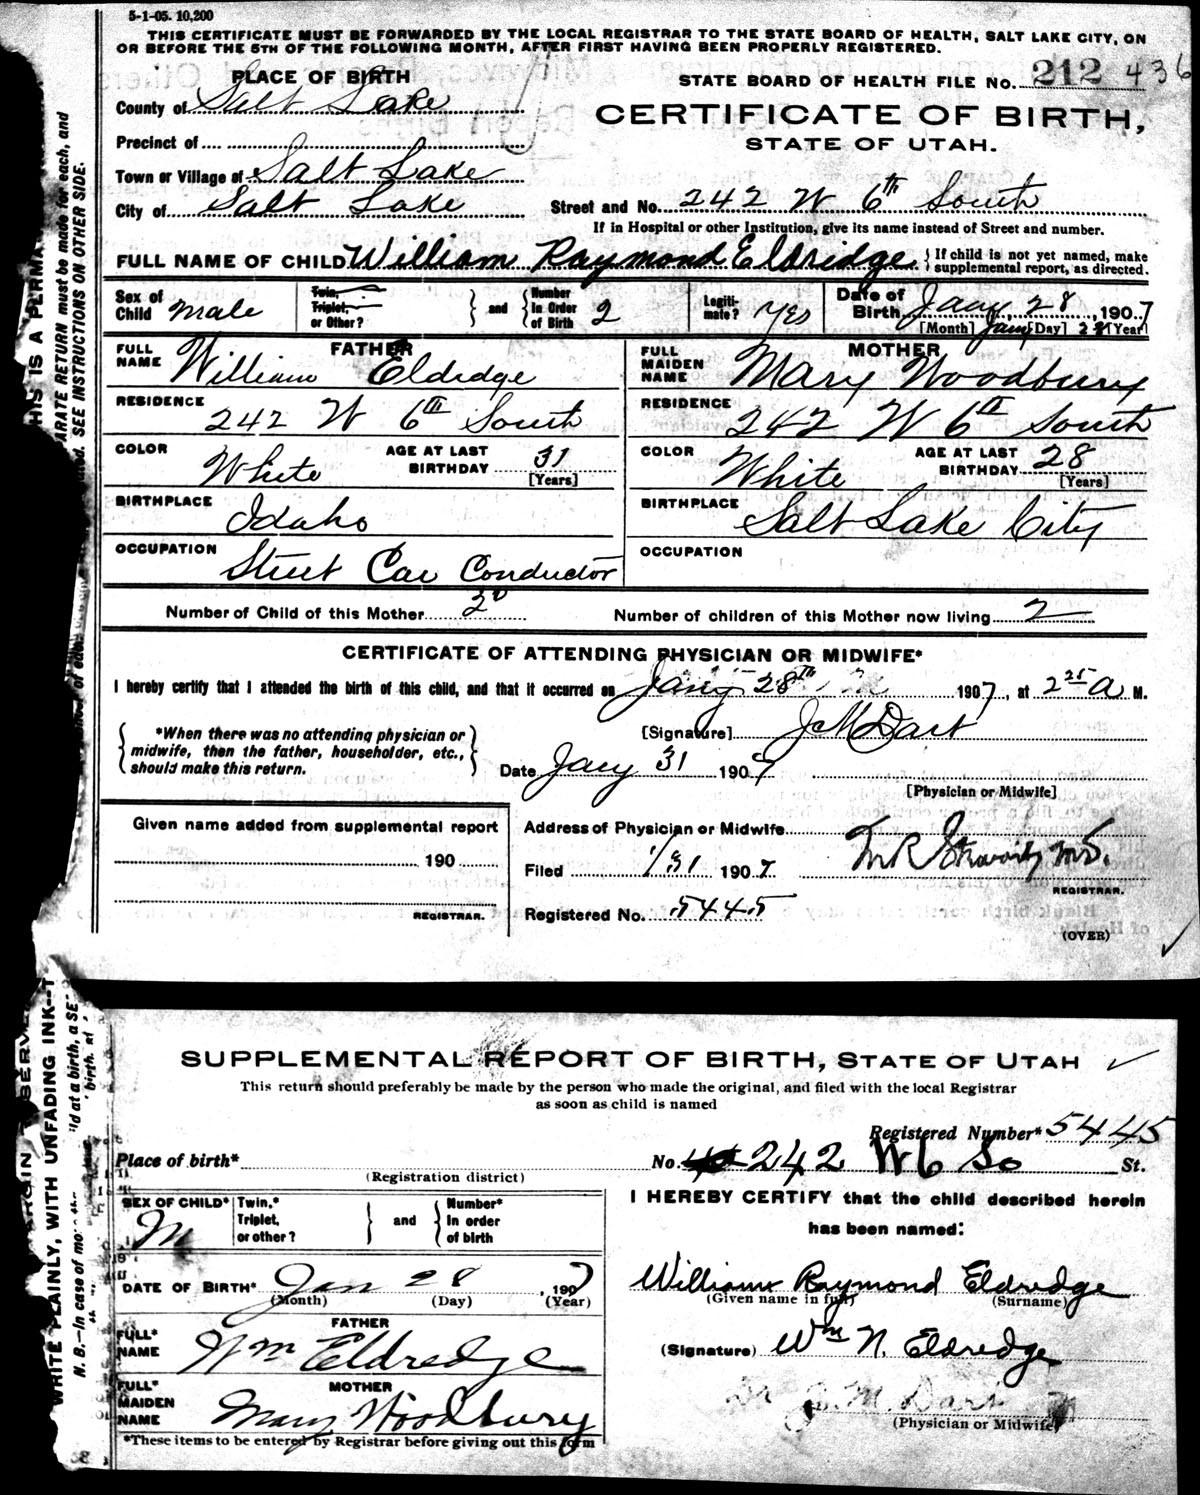 5-1-05. 10,200
THIS CERTIFICATE MUST BE FORWARDED BY THE LOCAL REGISTRAR TO THE STATE BOARD OF HEALTH, SALT LAKE CITY, ON
OR BEFORE THE 5TH OF THE FOLLOWING MONTH, AFTER FIRST HAVING BEEN PROPERLY REGISTERED.
PLACE OF BIRTH
STATE BOARD OF HEALTH FILE No. 212 436
County of Salt Lake
CERTIFICATE OF BIRTH,
Precinct of
STATE OF UTAH.
Town or Village of Salt Lake
City of Salt Lake
Street and No. 242 W 6th South
If in Hospital or other Institution, give its name instead of Street and number.
FULL NAME OF CHILD William Raymond Eldridge { If child is not yet named, make supplemental report, as directed.
Sex of Child Male Twin, Triplet, or Other? } and { Number In Order of Birth 2 Legiti-mate? Yes Date of Birth Jany 28, 1907
[Month] Jany [Day] 28 [Year]
FATHER
FULL NAME William Eldidge
RESIDENCE 242 W 6th South
COLOR White AGE AT LAST BIRTHDAY 31 [Years]
BIRTHPLACE Idaho
OCCUPATION Street Car Conductor
MOTHER
FULL MAIDEN NAME Mary Woodbury
RESIDENCE 242 W 6th South
COLOR White AGE AT LAST BIRTHDAY 28 [Years]
BIRTHPLACE Salt Lake City
OCCUPATION
Number of Child of this Mother 2d Number of children of this Mother now living 2
CERTIFICATE OF ATTENDING PHYSICIAN OR MIDWIFE*
I hereby certify that I attended the birth of this child, and that it occurred on Jany 28th 1907, at 2 25 A M.
{ *When there was no attending physician or midwife, then the father, householder, etc., should make this return. }
[Signature] J M Dart
Date Jany 31 1907
[Physician or Midwife]
Given name added from supplemental report
190
REGISTRAR.
Address of Physician or Midwife
Filed 1/31 1907
REGISTRAR.
Registered No. 5445
(OVER)
HIS IS A PERMA
ARATE RETURN must be made for each, and
SEE INSTRUCTIONS ON OTHER SIDE.
WRITE PLAINLY, WITH UNFADING INK—T
N. B.—In case of
ld at a birth, a SE
birth.
SUPPLEMENTAL REPORT OF BIRTH, STATE OF UTAH
This return should preferably be made by the person who made the original, and filed with the local Registrar
as soon as child is named
Registered Number* 5445
Place of birth* No. 242 W 6 So St.
(Registration district)
SEX OF CHILD* M Twin,* Triplet, or other? } and { Number* In order of birth
DATE OF BIRTH* Jan 28, 1907
(Month) (Day) (Year)
FATHER
FULL* NAME Wm Eldredge
MOTHER
FULL* MAIDEN NAME Mary Woodbury
*These items to be entered by Registrar before giving out this form
I HEREBY CERTIFY that the child described herein
has been named:
William Raymond Eldredge
(Given name in full) (Surname)
(Signature) Wm N. Eldredge
Dr J. M. Dart
(Physician or Midwife)